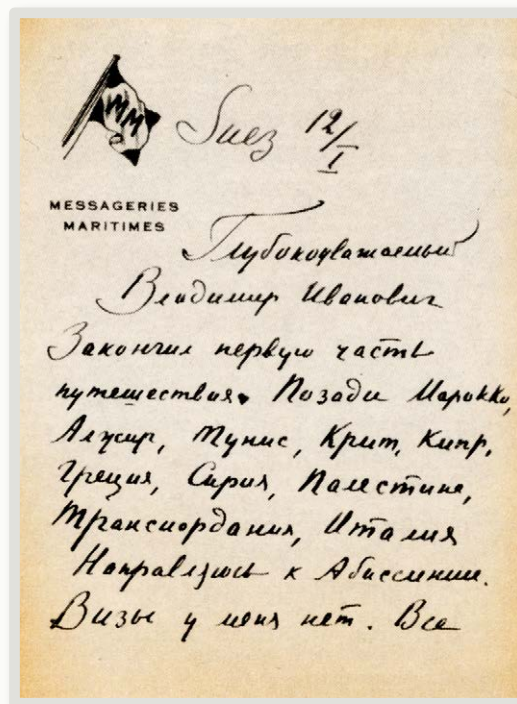 MM
Suez 12/I
MESSAGERIES
MARITIMES
Глубокоуважаемый
Владимир Иванович
Закончил первую часть
путешествия. Позади Марокко,
Алжир, Тунис, Крит, Кипр,
Греция, Сирия, Палестина,
Трансиордания, Италия
Направляюсь к Абиссинии.
Визы у меня нет. Все